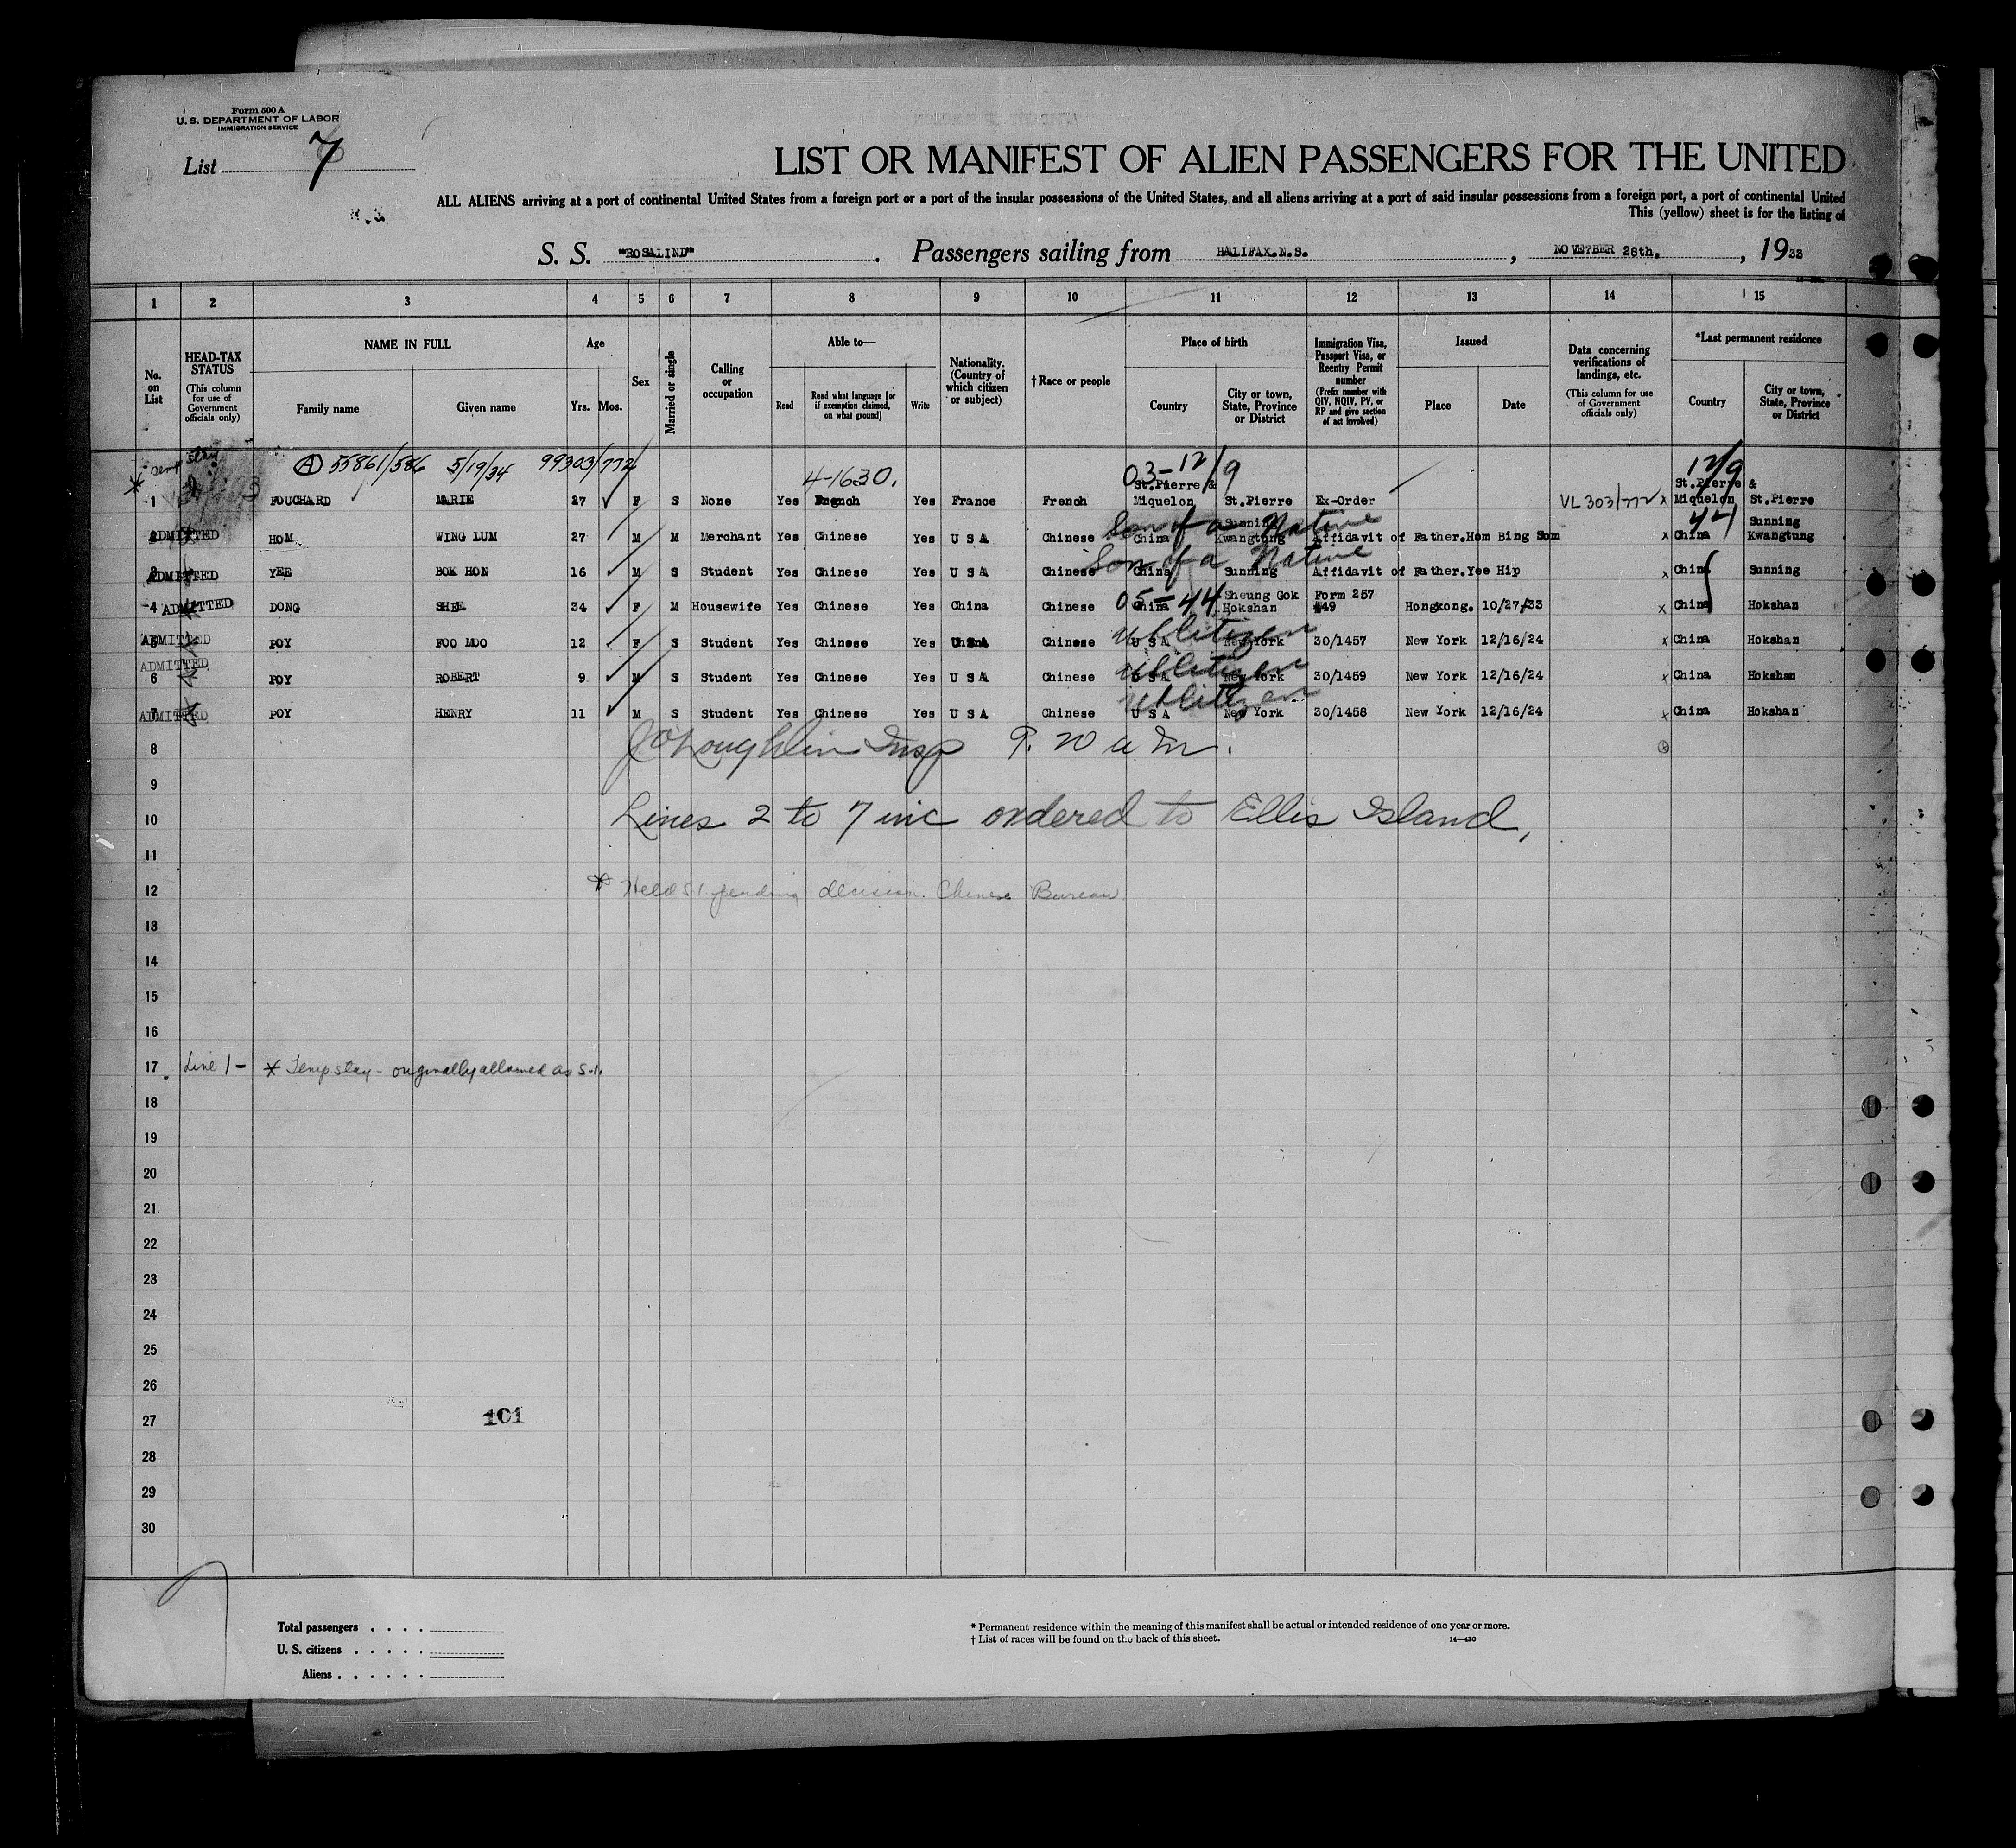 Form 500 A
U. S. DEPARTMENT OF LABOR
IMMIGRATION SERVICE
List 7
LIST OR MANIFEST OF ALIEN PASSENGERS FOR THE UNITED
ALL ALIENS arriving at a port of continental United States from a foreign port or a port of the insular possessions of the United States, and all aliens arriving at a port of said insular possessions from a foreign port, a port of continental United
This (yellow) sheet is for the listing of
S. S. "ROSALIND". Passengers sailing from HALIFAX.N.S., NOVE?BER 28th., 1933
1 2 3 4 5 6 7 8 9 10 11 12 13 14 15
No. on List
HEAD-TAX STATUS (This column for use of Government officials only)
NAME IN FULL Family name Given name
Age Yrs. Mos.
Sex
Married or single
Calling or occupation
Able to— Read Read what language [or if exemption claimed, on what ground] Write
Nationality. (Country of which citizen or subject)
†Race or people
Place of birth Country City or town, State, Province or District
Immigration Visa, Passport Visa, or Reentry Permit number (Prefix number with QIV, NQIV, PV, or RP and give section of act involved)
Issued Place Date
Data concerning verifications of landings, etc. (This column for use of Government officials only)
*Last permanent residence Country City or town, State, Province or District
Temp stay A 55861/586 5/19/34 99303/772 4-1630. 03-12/9 12/9
1 FOUCHARD MARIE 27 F S None Yes French Yes France French St.Pierre & Miquelon St.Pierre Ex-Order VL 303/772 x St.Pierre & Miquelon St.Pierre
Son of a Native 44
ADMITTED 2 HOM WING LUM 27 M M Merchant Yes Chinese Yes U S A Chinese China Sunning Kwangtung Affidavit of Father.Hom Bing Som x China Sunning Kwangtung
Son of a Native
ADMITTED 3 YEE BOK HON 16 M S Student Yes Chinese Yes U S A Chinese China Sunning Affidavit of Father.Yee Hip x China Sunning
ADMITTED 4 DONG SHEE 34 F M Housewife Yes Chinese Yes China Chinese 05-44 China Sheung Gok Hokshan Form 257 #49 Hongkong. 10/27/33 x China Hokshan
ADMITTED 5 POY FOO MOO 12 F S Student Yes Chinese Yes Chinese US Citizen U S A New York 30/1457 New York 12/16/24 x China Hokshan
ADMITTED 6 POY ROBERT 9 M S Student Yes Chinese Yes U S A Chinese US Citizen U S A New York 30/1459 New York 12/16/24 x China Hokshan
ADMITTED 7 POY HENRY 11 M S Student Yes Chinese Yes U S A Chinese US Citizen U S A New York 30/1458 New York 12/16/24 x China Hokshan
8 J O'Loughlin Insp
9
10 Lines 2 to 7 inc ordered to Ellis Island,
11
12 * Held S.I. pending decision. Chinese Bureau.
13
14
15
16
17 Line 1 - * Temp stay - originally allowed as S.I.
18
19
20
21
22
23
24
25
26
27 101
28
29
30
Total passengers . . . .
U. S. citizens . . . . .
Aliens . . . . . .
* Permanent residence within the meaning of this manifest shall be actual or intended residence of one year or more.
† List of races will be found on the back of this sheet. 14—430